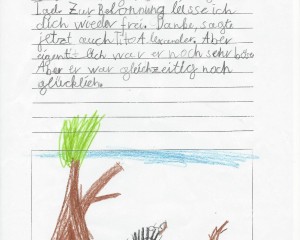 Tad. Zur Belohnung lasse ich
dich wieder frei. Danke, sagte
jetzt auch Tito Alexander. Aber
eigentlich war er noch sehr böse
Aber er war gleichzeitig noch
glücklich.